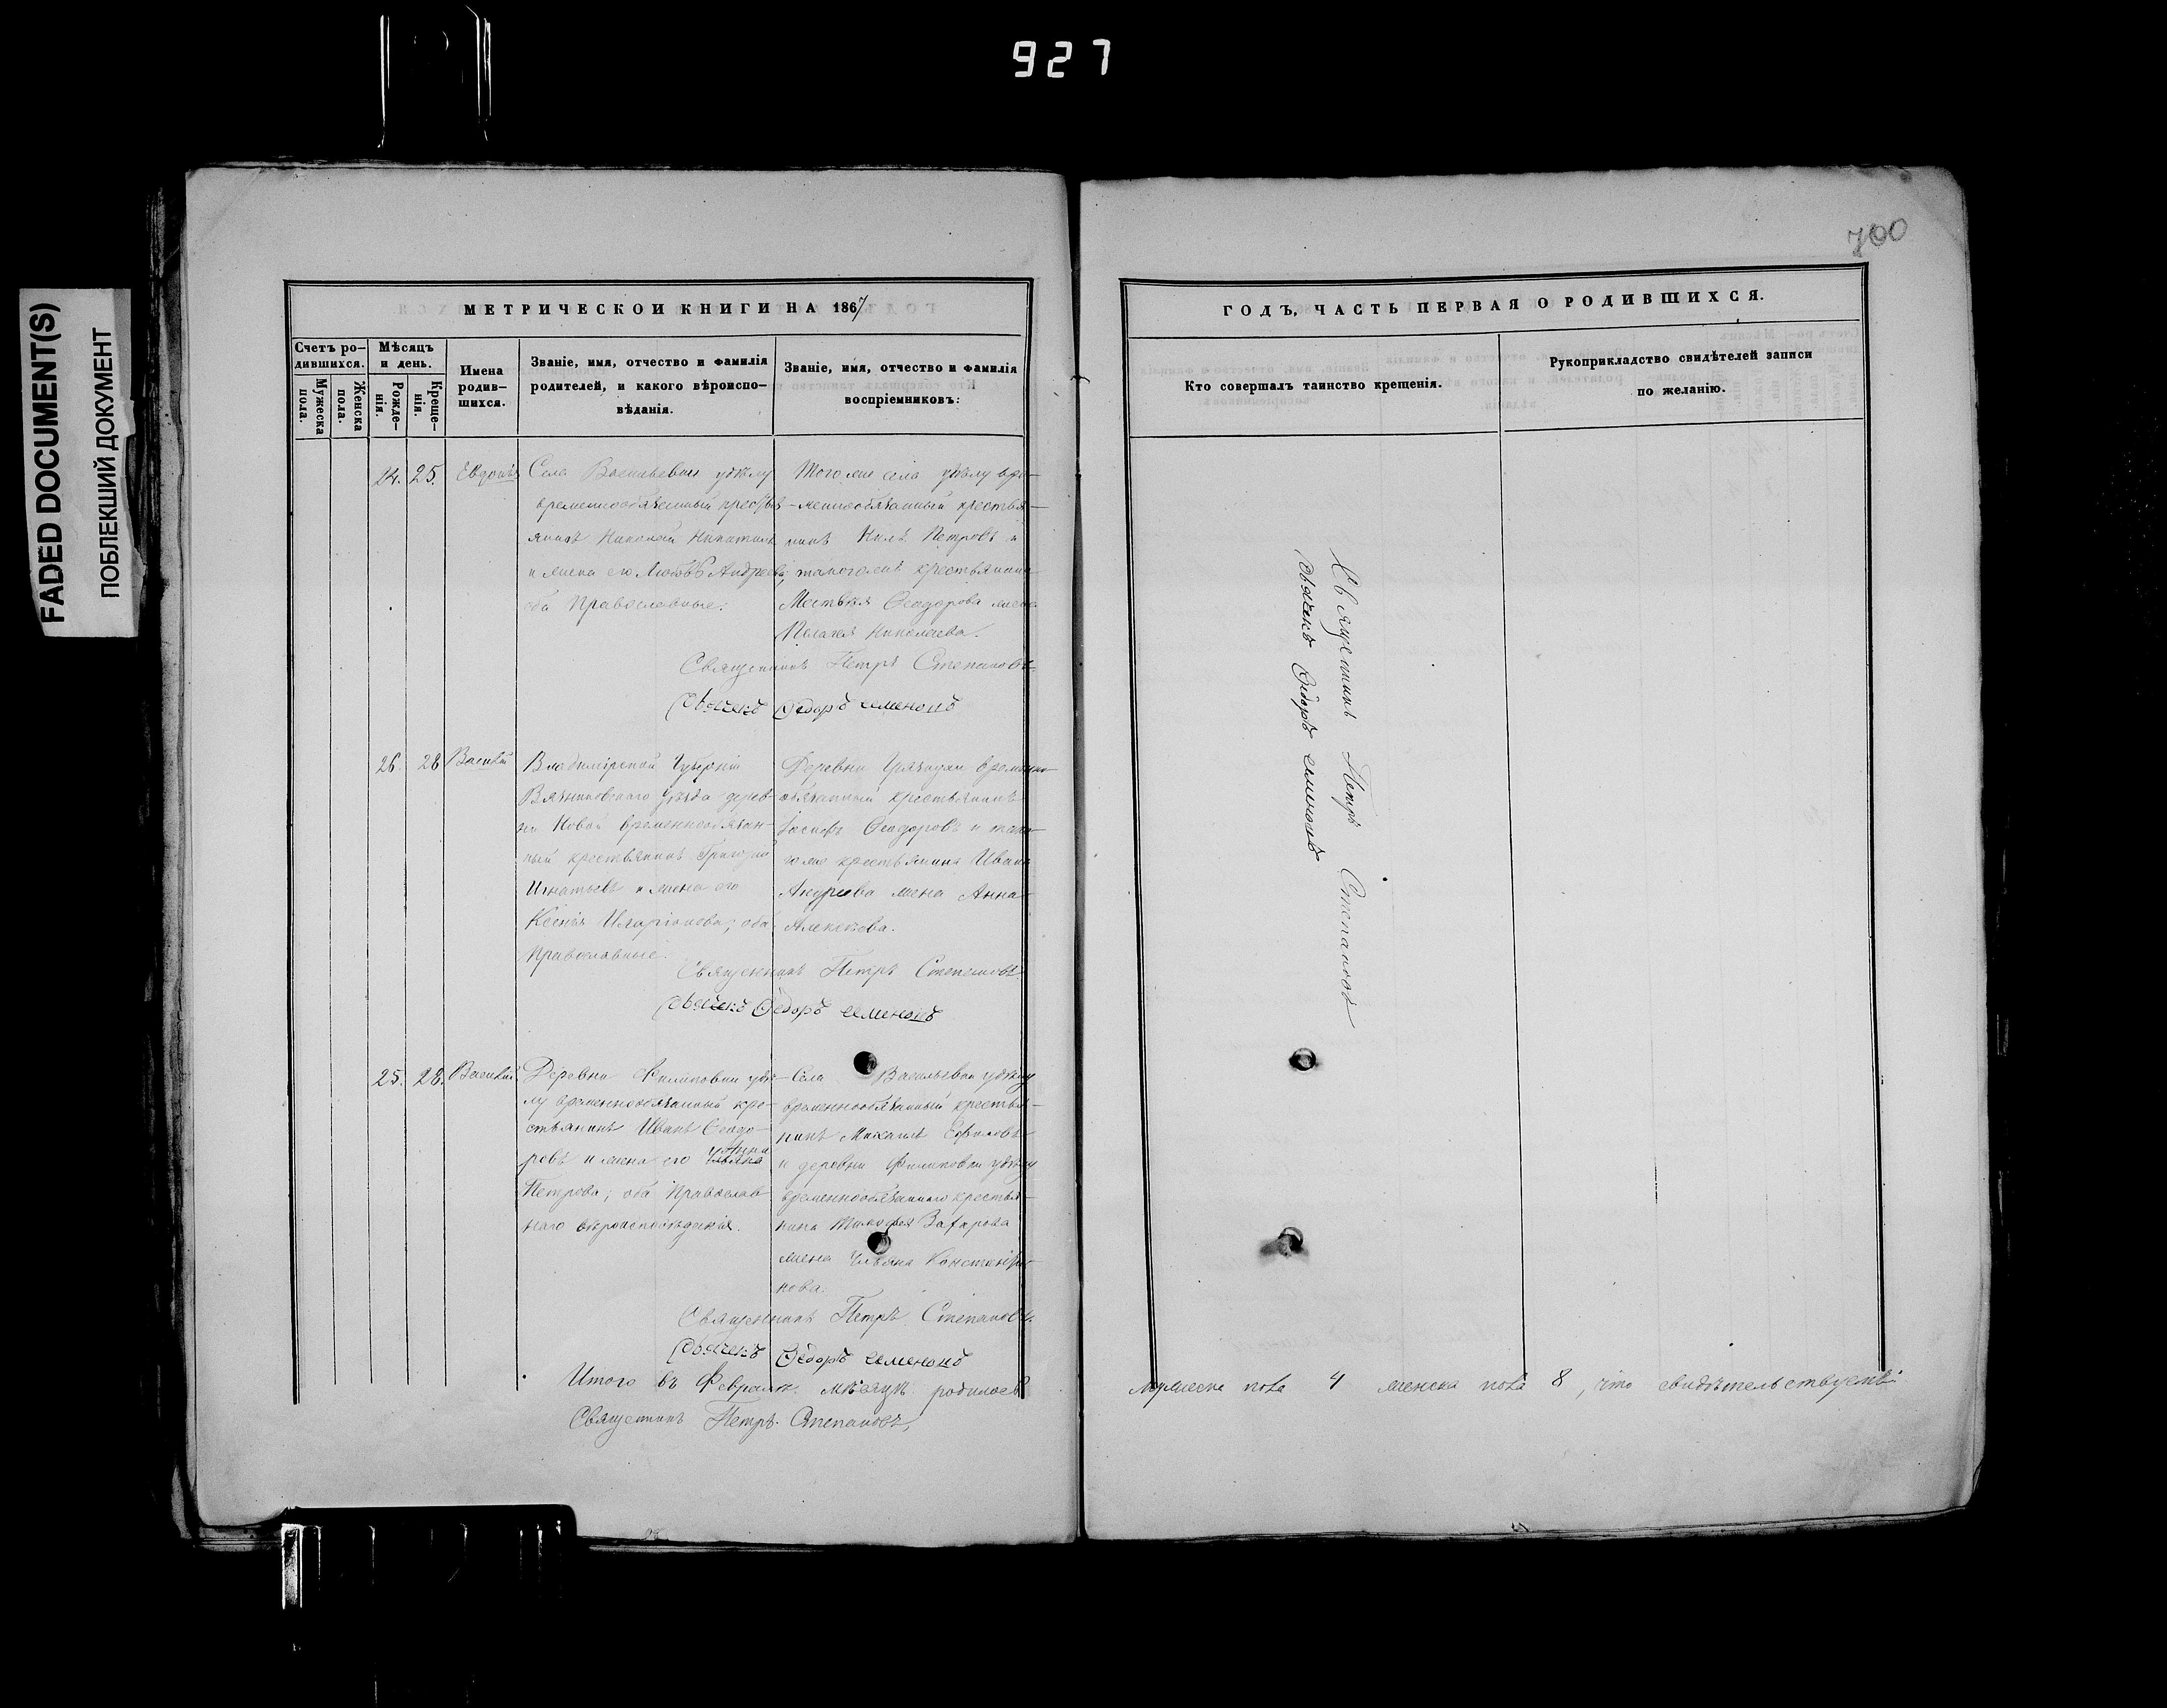 927
FADED DOCUMENT(S)
ПОБЛЕКШИЙ ДОКУМЕНТ
МЕТРИЧЕСКОЙ КНИГИ НА 1867
Счетъ ро-
дившихся.
Мужеска
пола.
Женска
пола.
Мѣсяцъ
и день.
Рожде-
нія.
Креще-
нія.
Имена
родив-
шихся.
Званіе, имя, отчество и фамилія
родителей, и какого вѣроиспо-
вѣданія.
Званіе, имя, отчество и фамилія
воспріемниковъ:
24. 25.
Села Васильевки удѣлу
временнообязанный крестья
янинъ Николай Никитинъ
и жена его Любовь Андреева,
оба Православные.
Того же села удѣлу вре-
-меннообязанный крестья-
нинъ Петровъ и
такого же крестьянина
Ѳеодорова жена
Пелагея Николаева.
Священникъ Петръ Степановъ
Дьячекъ Ѳедоръ Семеновъ
26. 28 Василій
Владимірской Губерніи
Вязниковскаго Уѣзда дерев-
ни Новой временнообязан-
ный крестьянинъ Григорій
Игнатьевъ и жена его
Ксенія Иларіонова; оба
Православные.
Деревни временно
обязанный крестьянинъ
Іосифъ Ѳеодоровъ и тако-
го же крестьянина Ивана
Андреева жена Анна
Алексѣева.
Священникъ Петръ Степановъ
Дьячекъ Ѳедоръ Семеновъ
25. 28. Василій
Деревни Филиповки удѣ-
лу временнообязанный кре-
стьянинъ Иванъ Ѳеодо-
ровъ и жена его
Петрова; оба Православ-
наго вѣроисповѣданія.
Села Васильевки удѣлу
временнообязанный крестья-
нинъ Михаилъ
и деревни Филиповки удѣлу
временнообязаннаго крестья-
нина Тимофея Захарова
жена Ульяна Константи-
нова.
Священникъ Петръ Степановъ.
Дьячекъ Ѳедоръ Семеновъ
Итого въ Февралѣ мѣсяцѣ родилось
Священникъ Петръ Степановъ,
700
ГОДЪ, ЧАСТЬ ПЕРВАЯ О РОДИВШИХСЯ.
Кто совершалъ таинство крещенія.
Рукоприкладство свидѣтелей записи
по желанію.
Священникъ Петръ Степановъ
Дьячекъ Ѳедоръ Семеновъ
Мужеска пола 4 женска пола 8, что свидѣтельствуетъ